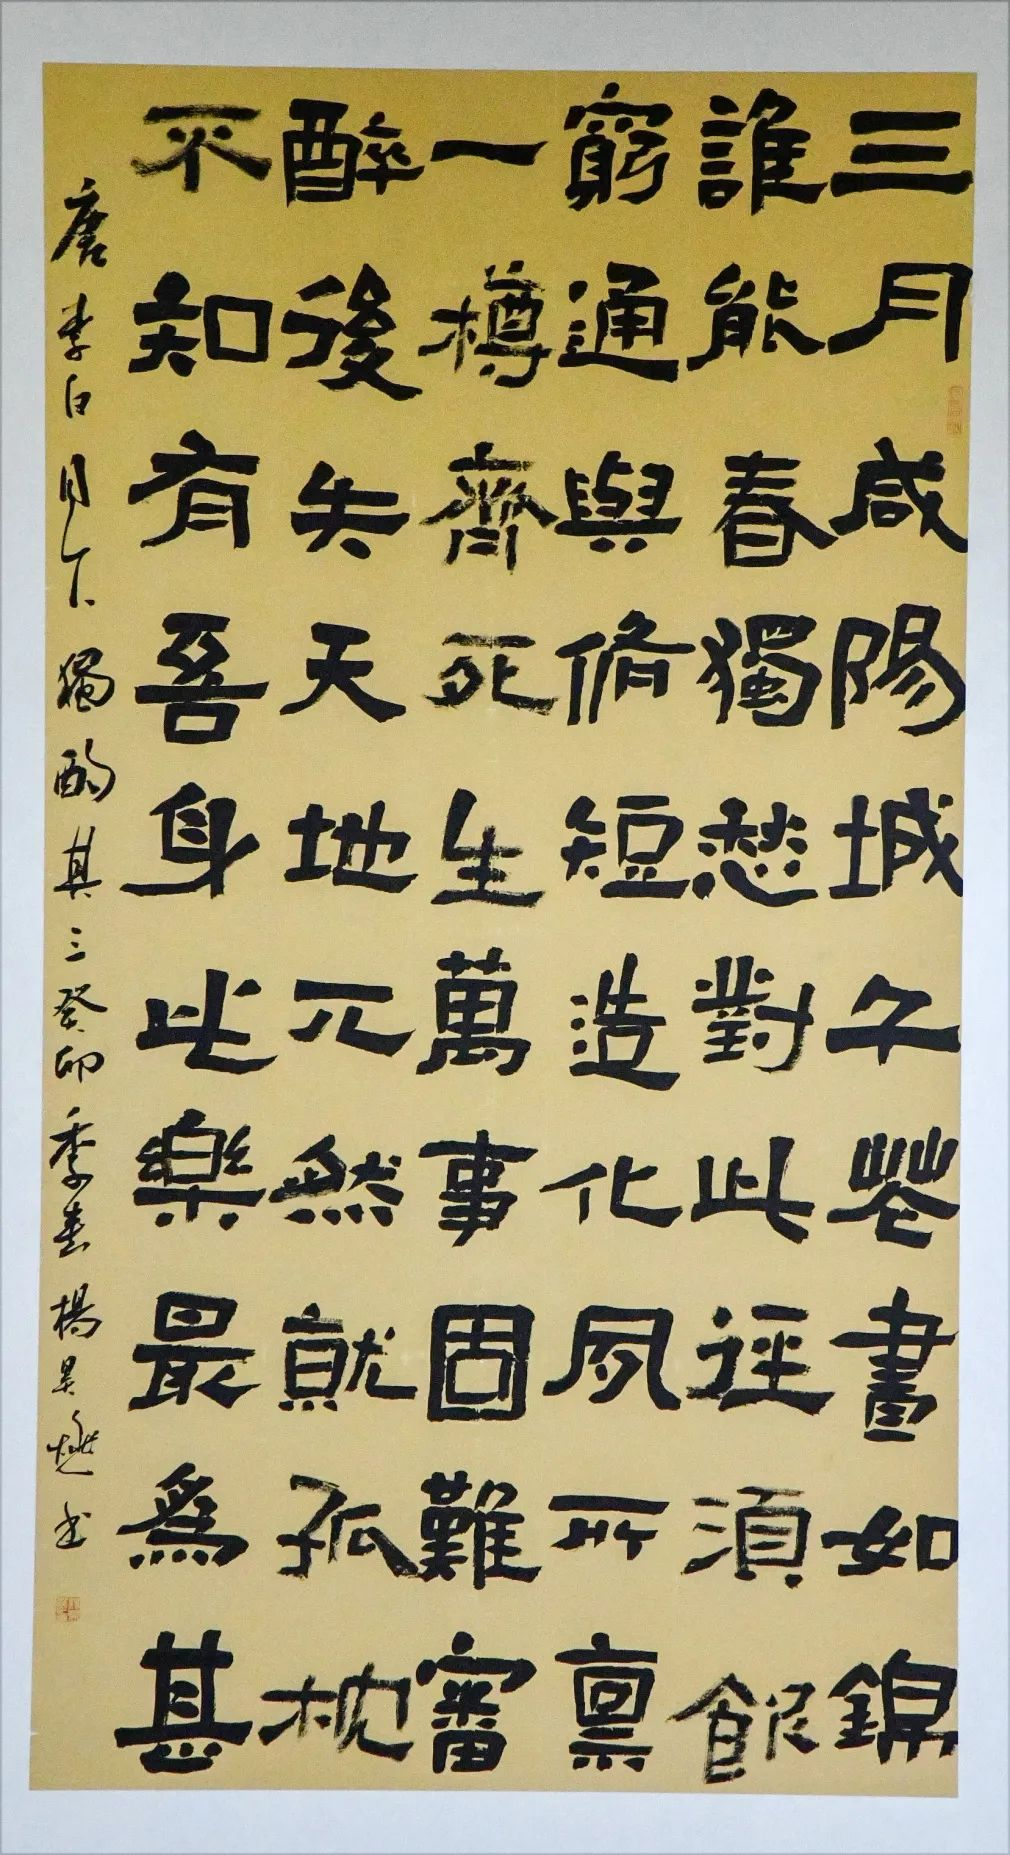 三月咸陽城千花晝如錦
誰能春獨愁對此徑須飲
窮通與脩短造化夙所稟
一樽齊死生萬事固難審
醉後失天地兀然就孤枕
不知有吾身此樂最爲甚
唐李白月下獨酌其三癸卯季春楊昊书